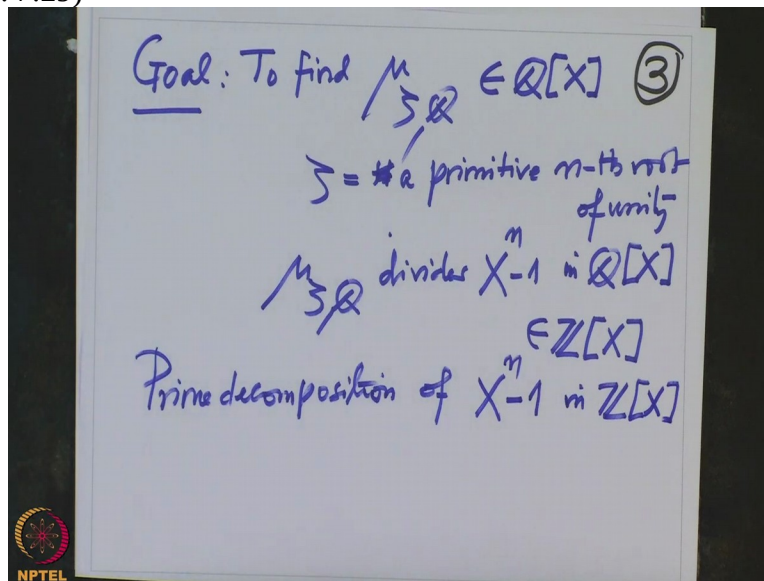 Goal: To find μ_ζ,ℚ ∈ ℚ[X] ③
ζ = a primitive n-th root
of unity
μ_ζ,ℚ divides X^n-1 in ℚ[X]
∈ ℤ[X]
Prime decomposition of X^n-1 in ℤ[X]
NPTEL